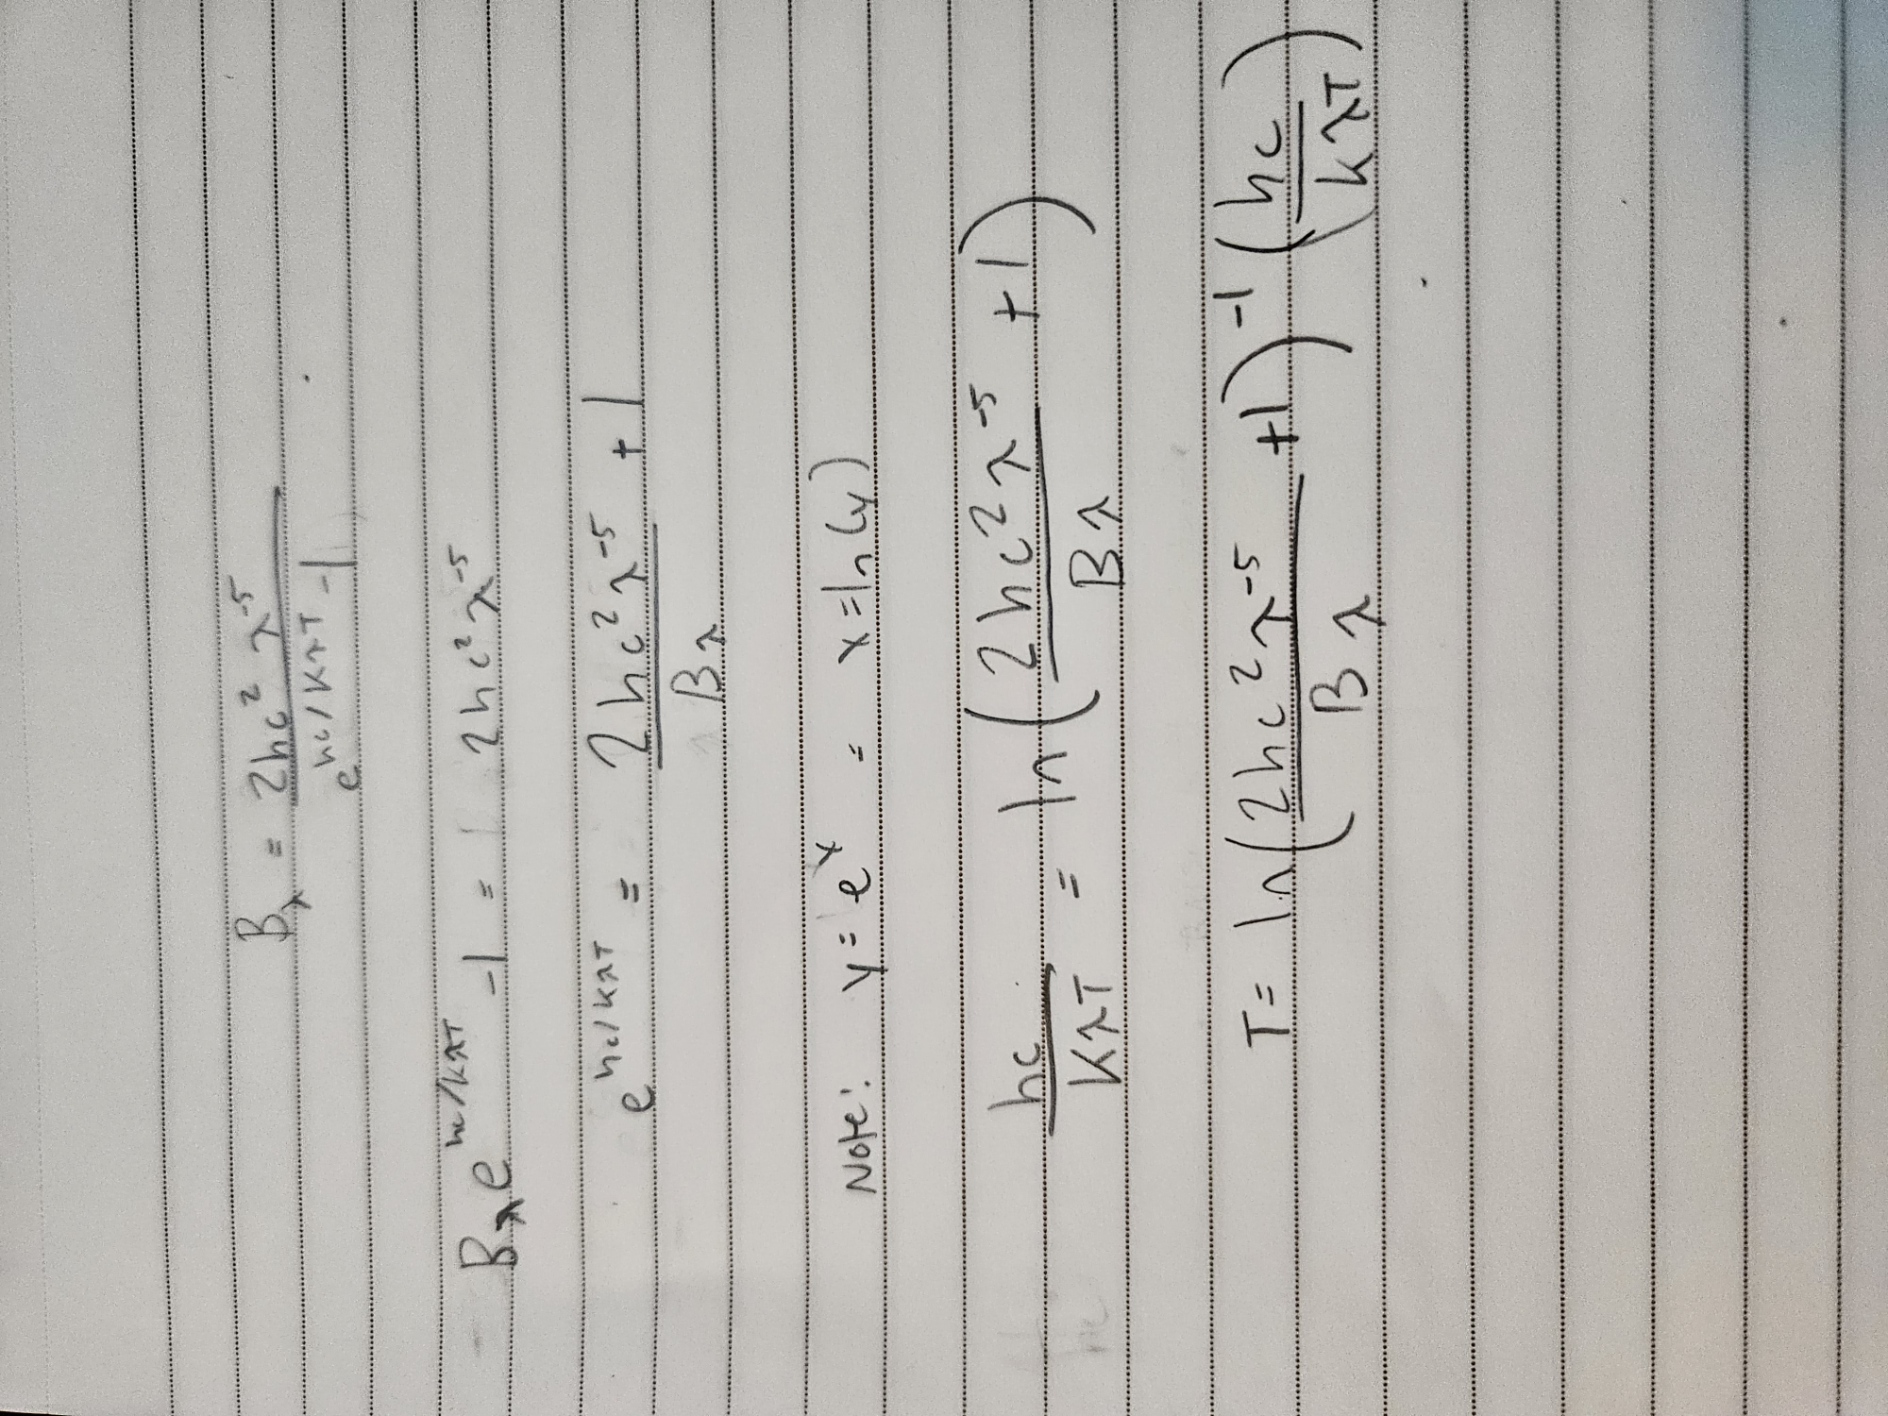 B_λ = 2hc² λ⁻⁵ / e^(hc/KλT) - 1
B_λ e^(hc/KλT) - 1 = 2hc²λ⁻⁵
e^(hc/KλT) = 2hc²λ⁻⁵ / Bλ + 1
Note: y = e^x = x = ln(y)
hc / KλT = ln(2hc²λ⁻⁵ / Bλ + 1)
T = ln(2hc²λ⁻⁵ / Bλ + 1)⁻¹ (hc / kλT)